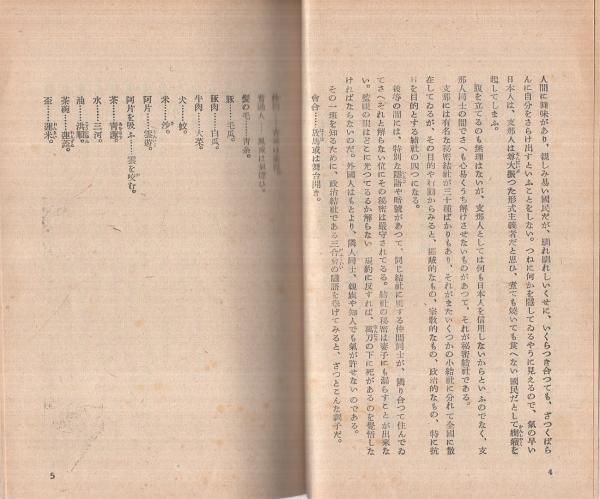 人間に興味があり、親しみ易い國民だが、馴れ馴れしいくせに、いくらつき合つても、ざつくばら
んに自分をさらけ出すといふことをしない。つねに何かを隱してゐるやうに見えるので、氣の早い
日本人は、支那人は尊大振つた形式主義者だと思ひ、煮ても燒いても食へない國民だとして癇癪を
起してしまふ。
腹を立てるのも無理はないが、支那人としては何も日本人を信用しないからといふのでなく、支
那人同士の間でさへも心易くうち解けさせないものがあつて、それが秘密結社である。
支那には有名な秘密結社が三十種ばかりもあり、それがまたいくつかの小結社に分れて全國に散
在してゐるが、その目的や行動からみると、匪賊的なもの、宗敎的なもの、政治的なもの、特に抗
日を目的とする結社の四つになる。
彼等の間には、特別な隱語や暗號があつて、同じ結社に屬する仲間同士が、隣り合つて住んでゐ
てさへそれと解らない位にその秘密は嚴守されてゐる。結社の秘密は妻子にも漏らすことが出來な
い。監視の眼はどこに光つてゐるか解らない。規約に反すれば、萬刀の下に死があるのを覺悟しな
ければならないのだ。外國人はもとより、隣人同士、親族や知人でも氣が許せないのである。
その一班を知るために、政治結社である三合會の隱語を擧げてみると、ざつとこんな調子だ。
會合……放馬或は舞台開き。
4
髮の毛……靑絲。
豚……毛瓜。
豚肉……白瓜。
牛肉……大菜。
犬……蚊。
米……沙。
阿片……雲遊。
阿片を吸ふ……雲を咬む。
茶……靑蓮。
水……三河。
油……洪順。
茶碗……蓮蓬。
盃……蓮米。
5